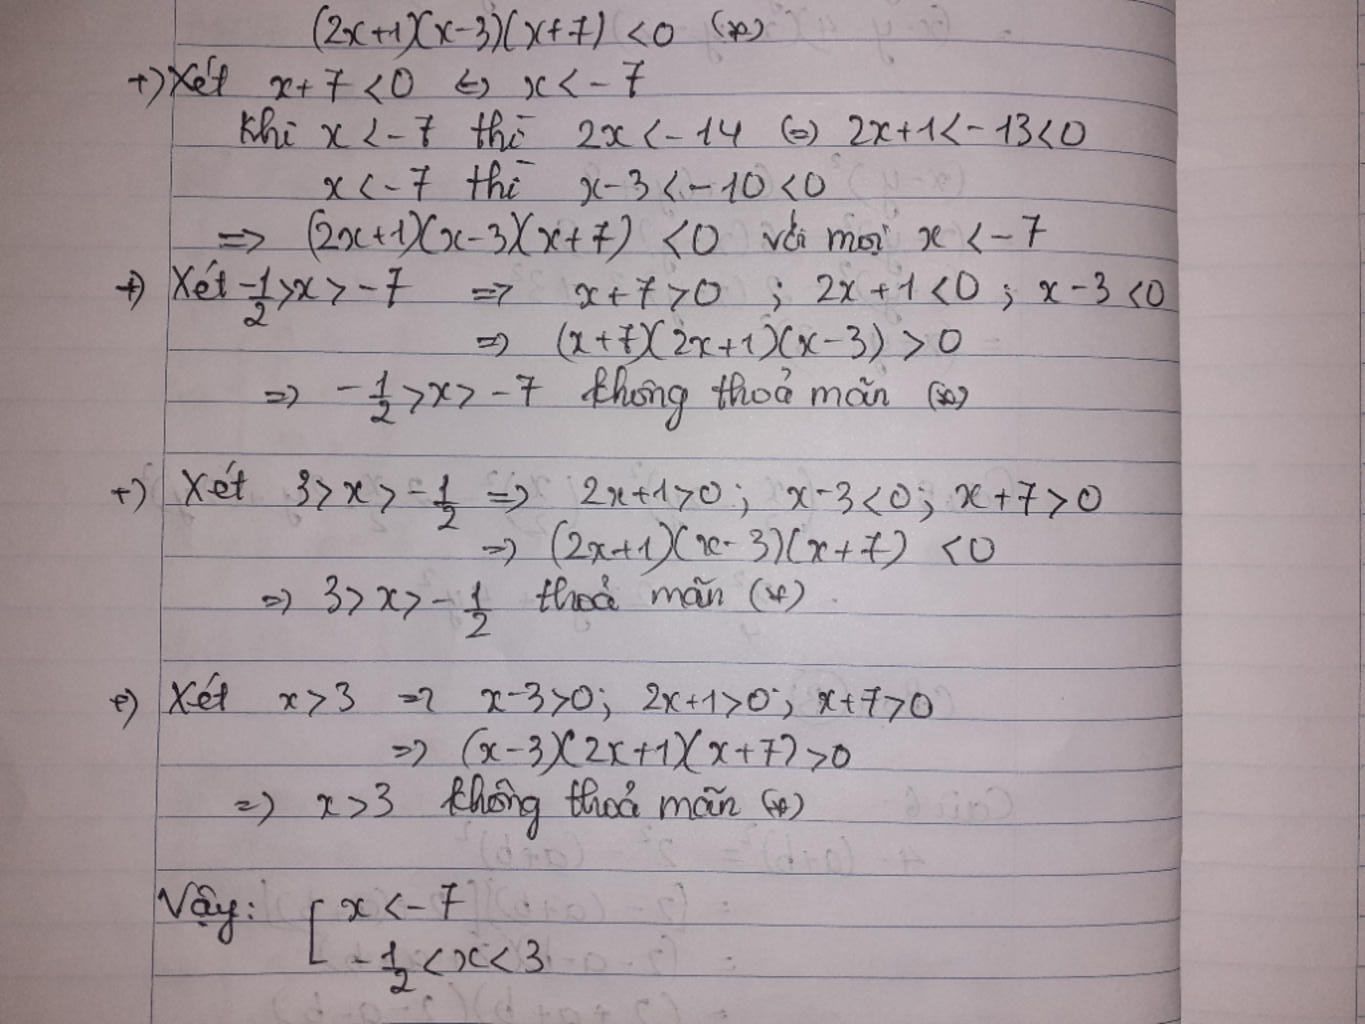 (2x+1)(x-3)(x+7) <0 (*)
+) Xét x+7<0 <=> x<-7
Khi x<-7 thì 2x<-14 (=) 2x+1<-13<0
x<-7 thì x-3<-10<0
=> (2x+1)(x-3)(x+7) <0 với mọi x <-7
+) Xét -1/2 >x>-7 => x+7>0 ; 2x+1<0 ; x-3<0
=) (x+7)(2x+1)(x-3) >0
=) -1/2 >x>-7 không thoả mãn (*)
+) Xét 3>x>-1/2 => 2x+1>0; x-3<0; x+7>0
=) (2x+1)(x-3)(x+7) <0
=) 3>x>-1/2 thoả mãn (*).
+) Xét x>3 => x-3>0; 2x+1>0; x+7>0
=) (x-3)(2x+1)(x+7)>0
=) x>3 không thoả mãn (*)
Vậy: [ x<-7
-1/2 <x<3